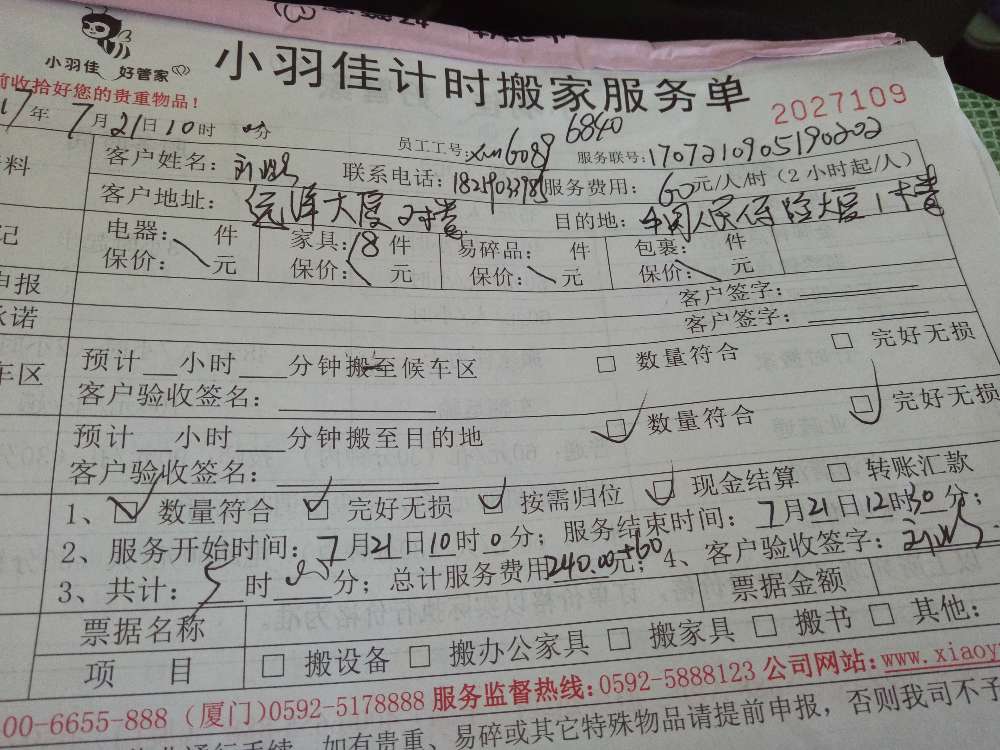 小羽佳 好管家
小羽佳计时搬家服务单
前收拾好您的贵重物品!
2027109
17年7月21日10时 分
员工工号: xm6089 6840
服务联号: 1707210905190202
客户姓名: 联系电话: 服务费用: 60元/人/时(2小时起/人)
客户地址: 远洋大厦2楼 目的地: 中国人民保险大厦1楼
电器: 件 家具: 18件 易碎品: 件 包裹: 件
保价: 元 保价: 元 保价: 元 保价: 元
客户签字:
申报
客户签字:
承诺
预计 小时 分钟搬至候车区 □ 数量符合 □ 完好无损
车区
客户验收签名:
预计 小时 分钟搬至目的地 ☑ 数量符合 ☑ 完好无损
客户验收签名:
1、☑ 数量符合 ☑ 完好无损 ☑ 按需归位 ☑ 现金结算 □ 转账汇款
2、服务开始时间: 7月21日10时0分; 服务结束时间: 7月21日12时30分;
3、共计: 5时 分; 总计服务费用240.00+60元; 4、客户验收签字:
票据名称 票据金额
项 目 □ 搬设备 □ 搬办公家具 □ 搬家具 □ 搬书 □ 其他:
00-6655-888 (厦门)0592-5178888 服务监督热线:0592-5888123 公司网站:www.xiaoy
如有贵重、易碎或其它特殊物品请提前申报,否则我司不予